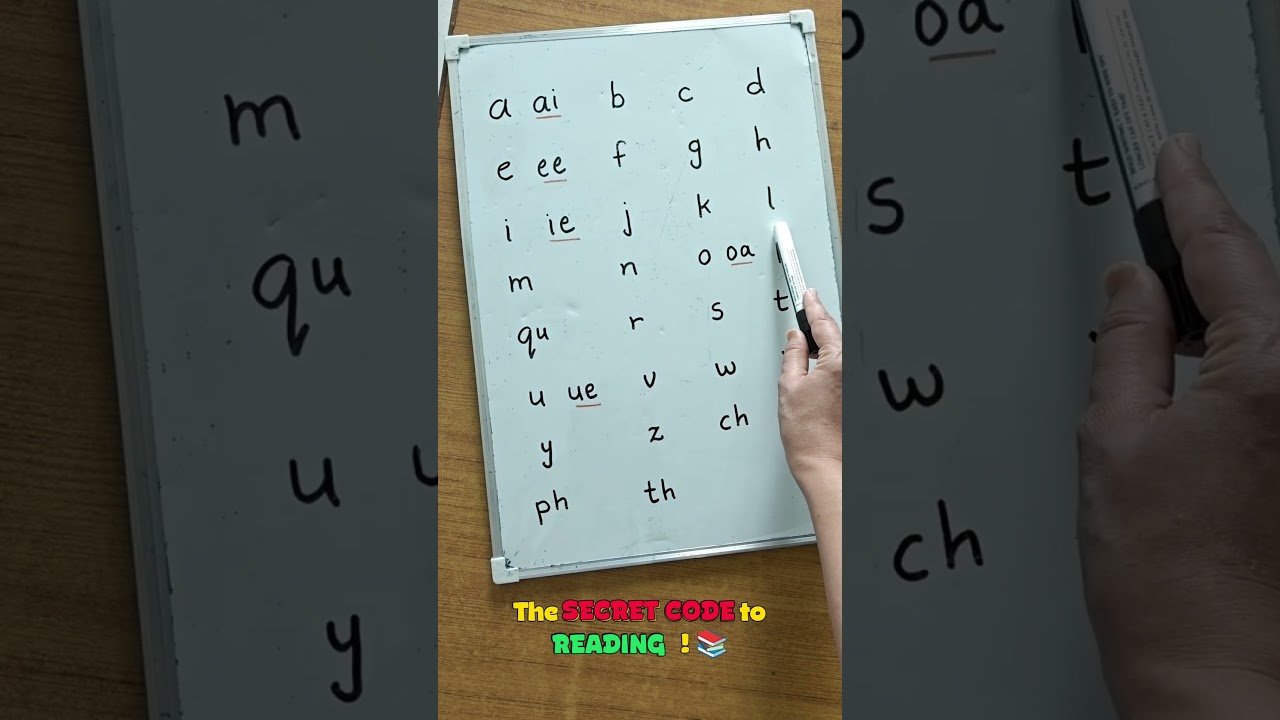 a ai b c d
e ee f g h
i ie j k l
m n o oa
qu r s t
u ue v w
y z ch
ph th
The SECRET CODE to
READING ! 📚